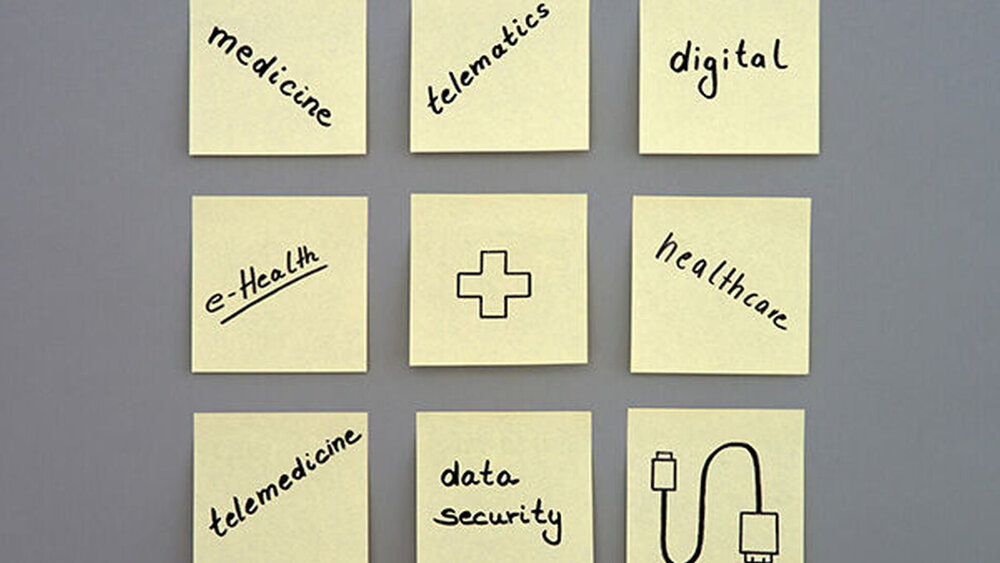 medicine
telematics
digital
e-Health
healthcare
telemedicine
data
security